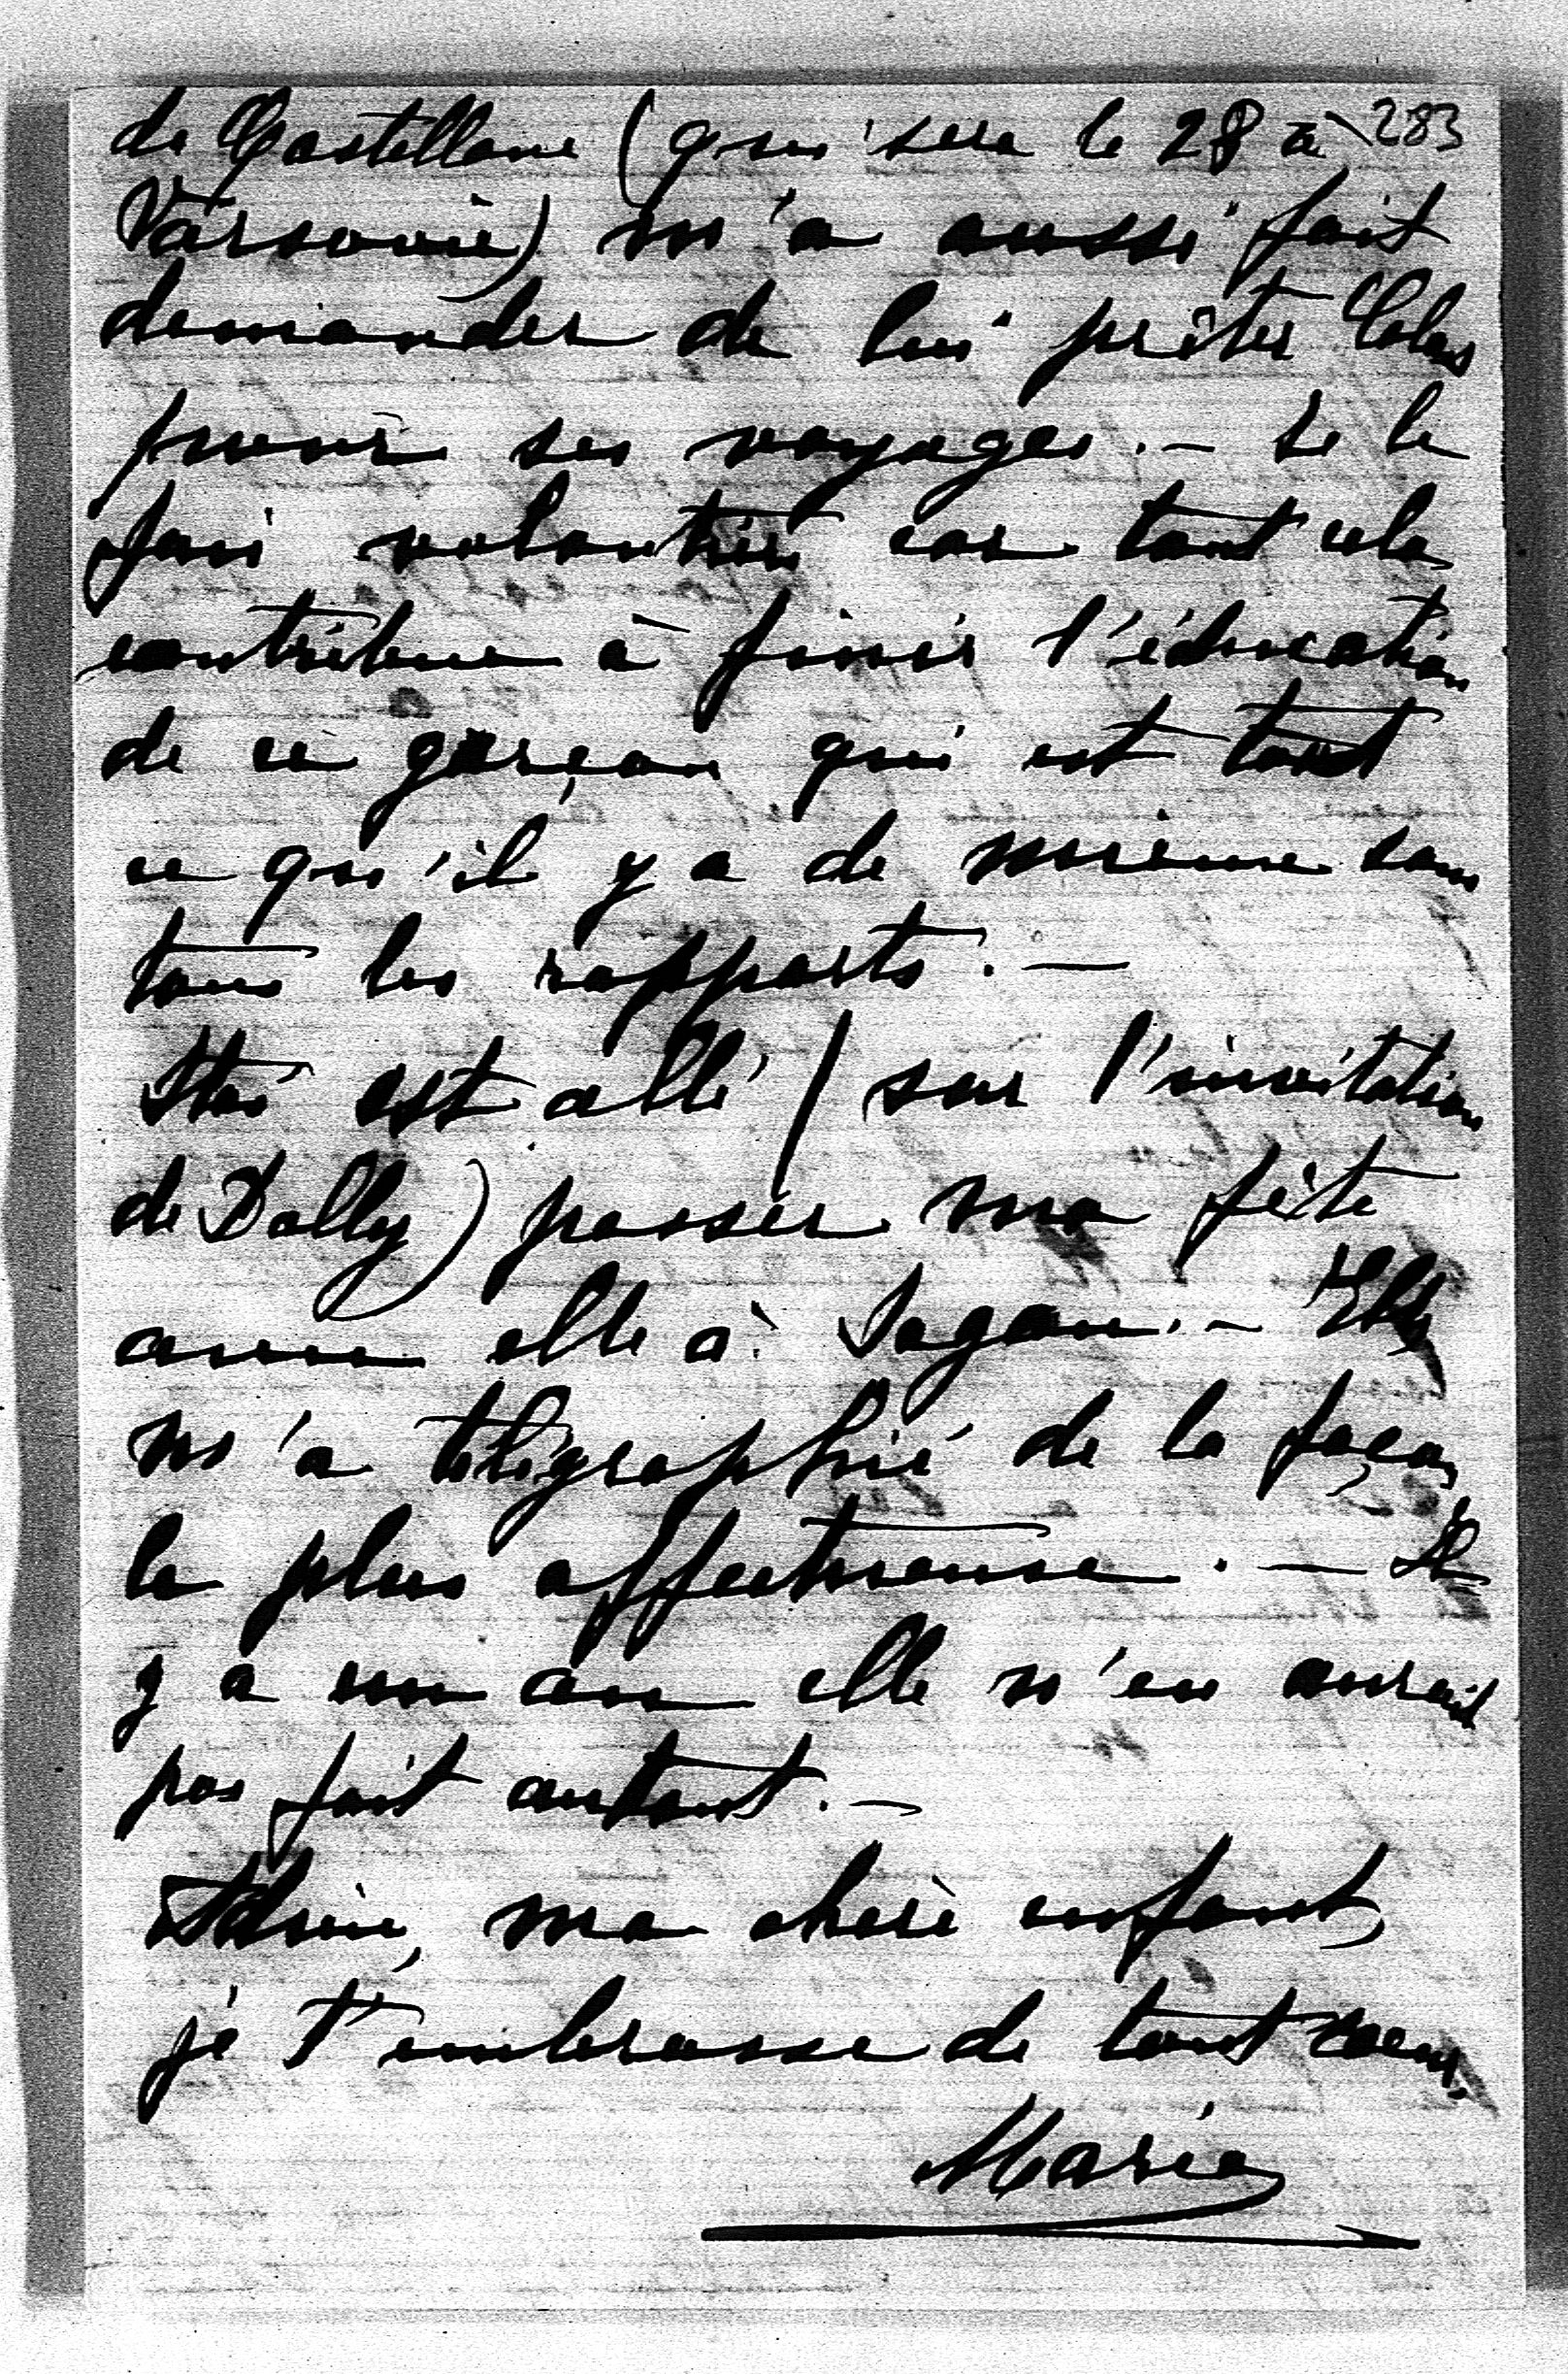 de Castellane (qui sera le 28 à 283
Varsovie) m'a aussi fait
demander de lui prêter
pour ses voyages. — Je le
fais volontiers car tout cela
contribue à finir l'éducation
de ce garçon qui est tout
ce qu'il y a de mieux sous
tous les rapports. —
est allé (sur l'invitation
de Dolly) passer ma fête
avec elle à Sagan. — Elle
m'a télégraphié de la façon
la plus affectueuse. — Il
y a un an elle n'en aurait
pas fait autant. —
Adieu, ma chère enfant,
je t'embrasse de tout coeur.
Marie